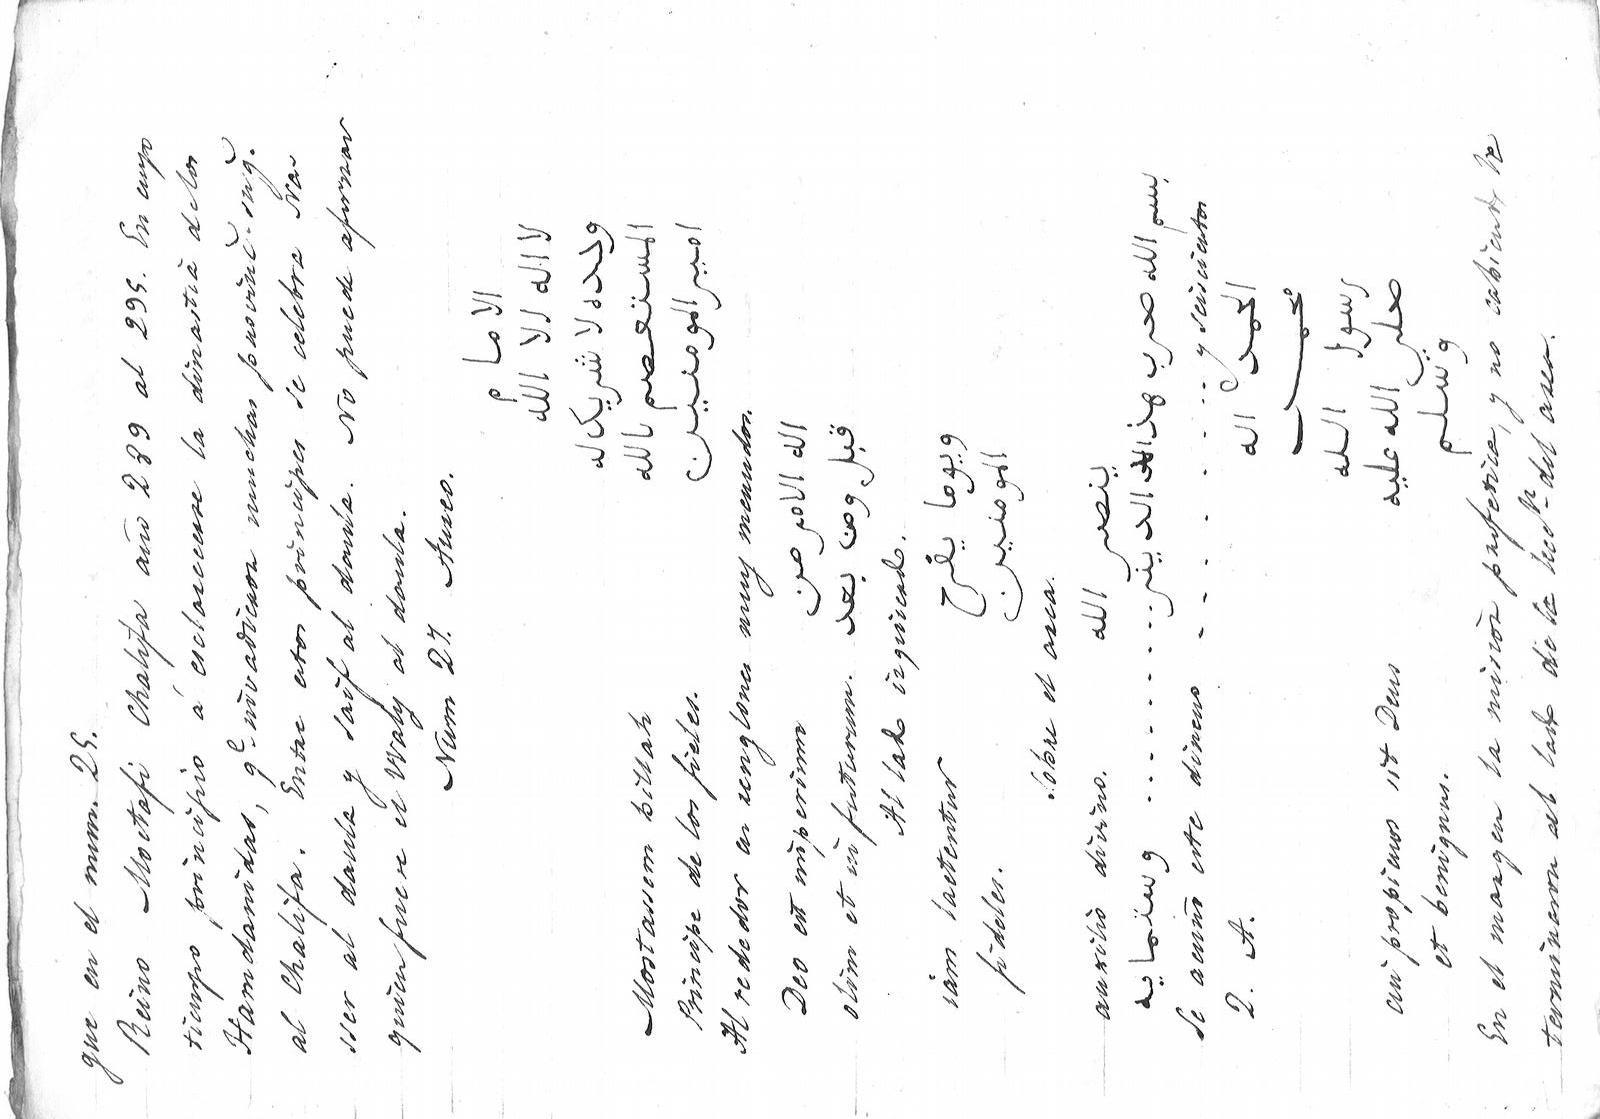 que en el num. 25.
Reino Moctafi Chalifa año 289 al 295. En cuyo
tiempo principio á esclarecerse la dinastia de los
Hamdanidas, qe invadieron muchas provinc.s
al Chalifa. Entre estos principes se celebra Na
sser al daula y saif al daula. No puede afirmar
quien fuere el Waly al daula.
Num 27. Aureo.
الامام
لا اله الا الله
وحده لا شريك له
المستعصم بالله
امير المومنين
Mostassem billah
Principe de los fieles.
Al rededor en renglones muy menudos.
لله الامر من
قبل ومن بعد
Deo est imperium
olim et in futurum.
Al lado izquierdo.
ويوما يفرح
المومنين
iam laetentur
fideles.
Sobre el area.
ينصر الله
auxilio divino.
بسم الله ضرب هذا الدينر . . . . . . . . وستماية
Se acuñó este dinero . . . . . . . . y seiscientos
2. A.
الحمد لله
محمد
رسول الله
صلى الله عليه
وسلم
cui propicius sit Deus
et benignus.
En el margen la mision profetica, y no cabiendo la
terminaron al lado de la del area.